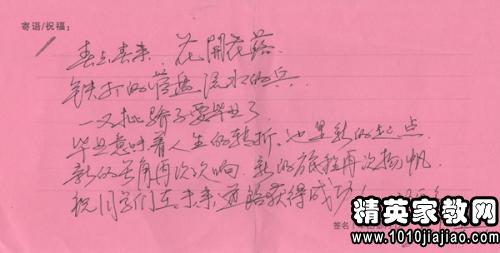 寄语/祝福：
春去春来，花开花落，
铁打的营盘流水的兵
一又批骄子要毕业了
毕业意味着人生的转折，也是新的起点
新的号角再次吹响，新的旅程再次扬帆，
祝同学们在未来道路获得成功！
签名：
精英家教网
www.1010jiajiao.com